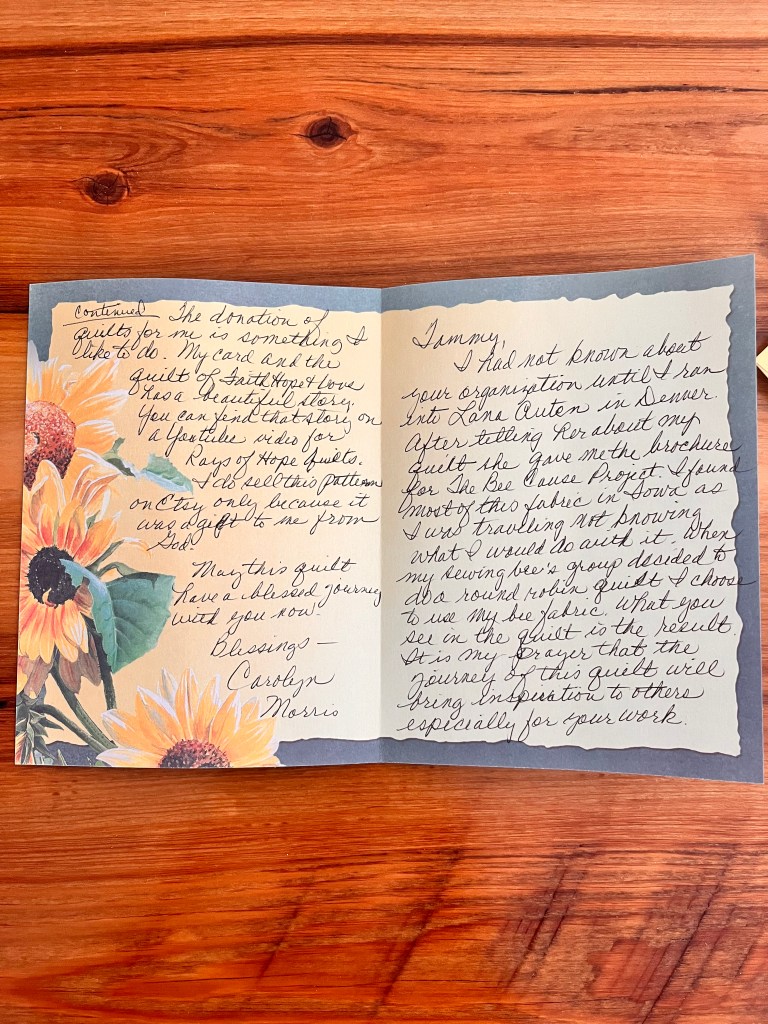 Tammy,
I had not known about
your organization until I ran
into Lana Auten in Denver.
After telling her about my
quilt she gave me the brochure
for The Bee Cause Project. I found
most of this fabric in Iowa as
I was traveling not knowing
what I would do with it. When
my sewing bee's group decided to
do a round robin quilt I choose
to use my bee fabric. What you
see in the quilt is the result.
It is my prayer that the
journey of this quilt will
bring inspiration to others
especially for your work.
continued The donation of
quilts for me is something I
like to do. My card and the
quilt of Faith Hope & Love
has a beautiful story.
You can find that story on
a Youtube video for
Rays of Hope Quilts.
I do sell this pattern
on Etsy only because it
was a gift to me from
God.
May this quilt
have a blessed journey
with you now.
Blessings —
Carolyn
Morris